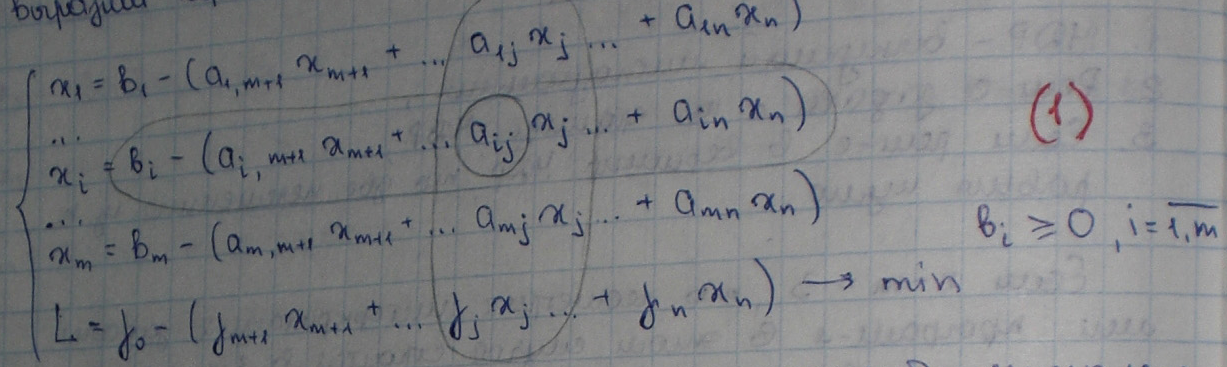 x₁ = b₁ - (a₁,ₘ₊₁ xₘ₊₁ + ... a₁ⱼ xⱼ ... + a₁ₙ xₙ)
...
xᵢ = bᵢ - (aᵢ,ₘ₊₁ xₘ₊₁ + ... aᵢⱼ xⱼ ... + aᵢₙ xₙ) (1)
...
xₘ = bₘ - (aₘ,ₘ₊₁ xₘ₊₁ + ... aₘⱼ xⱼ ... + aₘₙ xₙ) bᵢ ≥ 0, i = 1,m
L = γ₀ - (γₘ₊₁ xₘ₊₁ + ... γⱼ xⱼ ... + γₙ xₙ) → min